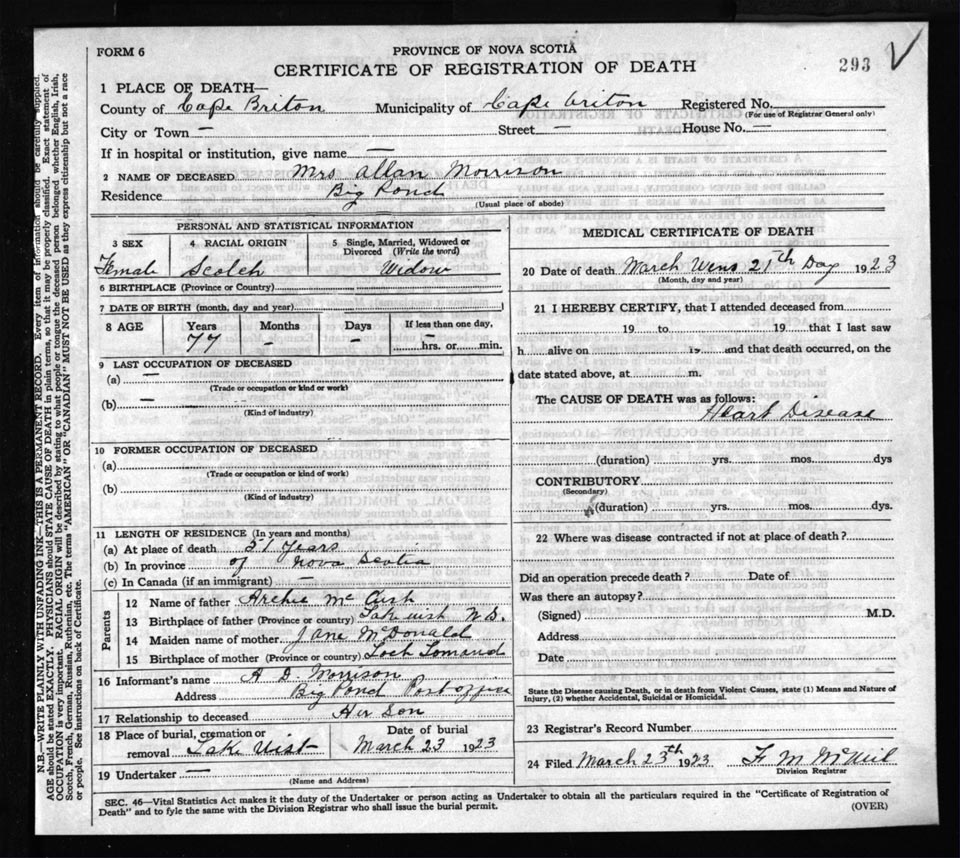 FORM 6
PROVINCE OF NOVA SCOTIA
CERTIFICATE OF REGISTRATION OF DEATH
293
1 PLACE OF DEATH—
County of Cape Briton Municipality of Cape Briton Registered No.
(For use of Registrar General only)
City or Town — Street — House No. —
If in hospital or institution, give name —
2 NAME OF DECEASED Mrs Allan Morrison
Residence Big Pond
(Usual place of abode)
PERSONAL AND STATISTICAL INFORMATION
3 SEX 4 RACIAL ORIGIN 5 Single, Married, Widowed or Divorced (Write the word)
Female Scotch Widow
6 BIRTHPLACE (Province or Country)
7 DATE OF BIRTH (month, day and year)
8 AGE Years Months Days If less than one day,
77 - - hrs. or min.
9 LAST OCCUPATION OF DECEASED
(a) —
(Trade or occupation or kind or work)
(b) —
(Kind of industry)
10 FORMER OCCUPATION OF DECEASED
(a)
(Trade or occupation or kind of work)
(b)
(Kind of industry)
11 LENGTH OF RESIDENCE (In years and months)
(a) At place of death 51 years
(b) In province of Nova Scotia
(c) In Canada (if an immigrant) —
Parents
12 Name of father Archie Mc
13 Birthplace of father (Province or country) Lake Uist N.S.
14 Maiden name of mother Jane McDonald
15 Birthplace of mother (Province or country) Loch Lomand
16 Informant's name A D Morrison
Address Big Pond Post office
17 Relationship to deceased Her Son
18 Place of burial, cremation or removal Lake Uist
Date of burial March 23 1923
19 Undertaker —
(Name and Address)
MEDICAL CERTIFICATE OF DEATH
20 Date of death March Wens 21th Day 1923
(Month, day and year)
21 I HEREBY CERTIFY, that I attended deceased from
19 to 19 that I last saw
h alive on 19 and that death occurred, on the
date stated above, at m.
The CAUSE OF DEATH was as follows:
Heart Disease
(duration) yrs. mos. dys
CONTRIBUTORY
(Secondary)
(duration) yrs. mos. dys.
22 Where was disease contracted if not at place of death?
Did an operation precede death? Date of
Was there an autopsy?
(Signed) M.D.
Address
Date
State the Disease causing Death, or in death from Violent Causes, state (1) Means and Nature of
Injury, (2) whether Accidental, Suicidal or Homicidal.
23 Registrar's Record Number
24 Filed March 23th 1923 F. M McNeil
Division Registrar
SEC. 46—Vital Statistics Act makes it the duty of the Undertaker or person acting as Undertaker to obtain all the particulars required in the "Certificate of Registration of
Death" and to fyle the same with the Division Registrar who shall issue the burial permit.
(OVER)
N.B.—WRITE PLAINLY WITH UNFADING INK—THIS IS A PERMANENT RECORD. Every item of information should be carefully supplied.
AGE should be stated EXACTLY. PHYSICIANS should STATE CAUSE OF DEATH in plain terms, so that it may be properly classified. Exact statement of
OCCUPATION is very important. RACIAL ORIGIN will be described by stating to what people or tongue the deceased person belonged whether English, Irish,
Scotch, French, German, Russian, Ruthenian, etc. The terms "AMERICAN" OR "CANADIAN" MUST NOT BE USED as they express citizenship but not a race
or people. See instructions on back of Certificate.